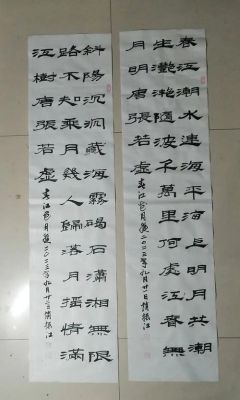 春江潮水連海平海上明月共潮
生灩灩隨波千萬里何處江春無
月明唐張若虛
春江花月夜二〇二三年九月廿一日 振江
斜陽沉沉藏海霧碣石瀟湘無限
路不知乘月幾人歸落月搖情滿
江樹唐張若虛
春江花月夜二〇二三年九月廿二日 振江